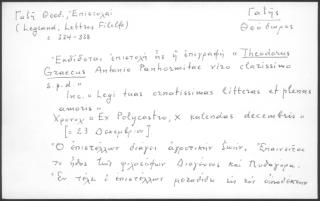 Γαζῆ Θεοδ., Ἐπιστολαί
(Legrand, Lettres Filelfe)
σ. 334-338
Γαζῆς
Θεόδωρος
Ἐκδίδεται ἐπιστολὴ ἧς ἡ ἐπιγραφὴ « Theodorus
Graecus Antonio Panhormitae viro clarissimo
s.p.d. »
Inc. « Legi tuas ornatissimas litteras et plenas
amoris »
Χρονολ. « Ex Polycastro, X kalendas decembris »
[= 23 Δεκεμβρίου]
Ὁ ἐπιστέλλων διάγει ἀγροτικὴν ζωήν, Ἐπαινεῖται
τὸ ἦθος τῶν φιλοσόφων Διογένους καὶ Πυθαγόρα.
Ἐν τέλει ὁ ἐπιστέλλων